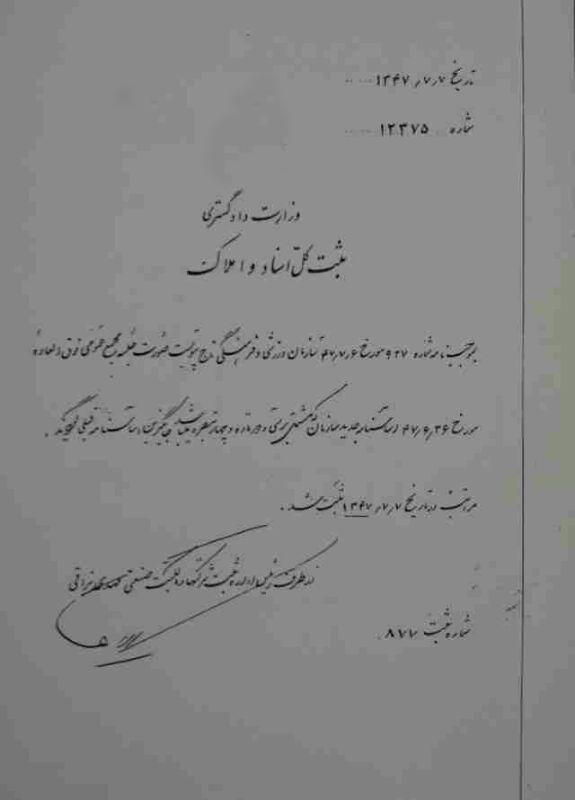 تاریخ ۱۳۴۷٫۷٫۷
شماره ۱۲۳۷۵
وزارت دادگستری
ثبت کل اسناد و املاک
بموجب نامه شماره ۹۲۷ مورخ ۴۷٫۷٫۶ سازمان ورزشی و فرهنگی تاج بپیوست صورت جلسه مجمع عمومی فوق‌العاده
مورخ ۴۷٫۶٫۲۶ اساسنامه جدید سازمان که مشتمل بر سی و چهار ماده و چهار تبصره میباشد جایگزین اساسنامه قبلی گردید.
مراتب در تاریخ ۱۳۴۷٫۷٫۷ ثبت شد.
از طرف رئیس اداره ثبت شرکتها و مالکیت صنعتی
شماره ثبت ۸۷۷